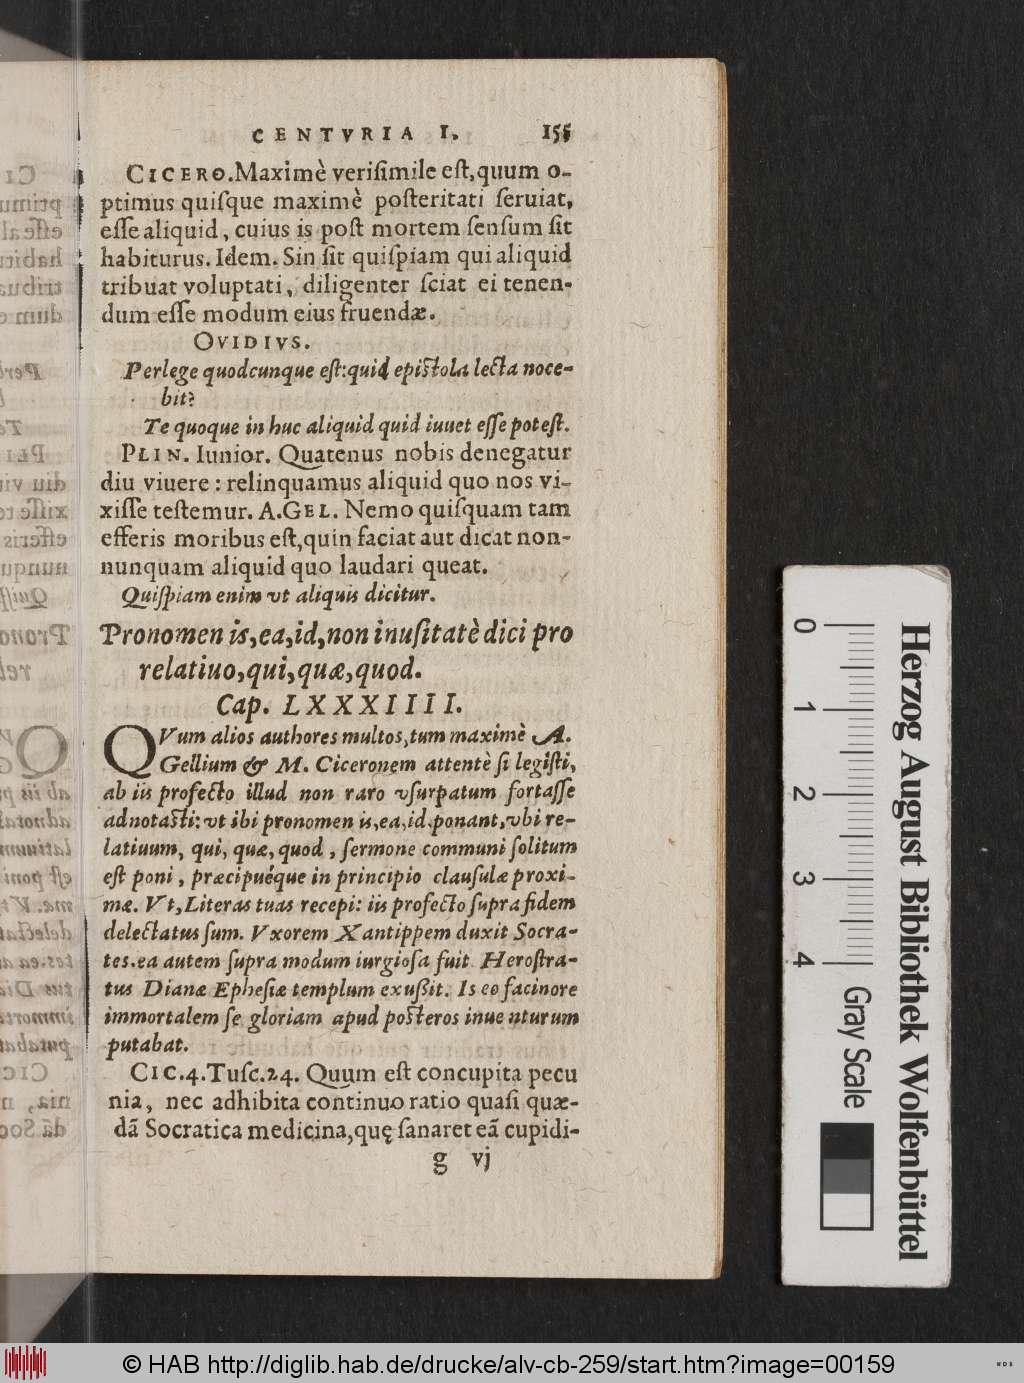 CENTVRIA I. 155
CICERO. Maximè veriſimile eſt, quum o-
ptimus quiſque maximè poſteritati ſeruiat,
eſſe aliquid, cuius is poſt mortem ſenſum ſit
habiturus. Idem. Sin ſit quiſpiam qui aliquid
tribuat voluptati, diligenter ſciat ei tenen-
dum eſſe modum eius fruendæ.
OVIDIVS.
Perlege quodcunque eſt: quid epiſtola lecta noce-
bit?
Te quoque in hac aliquid quid iuuet eſſe poteſt.
PLIN. Iunior. Quatenus nobis denegatur
diu viuere: relinquamus aliquid quo nos vi-
xiſſe teſtemur. A. GEL. Nemo quiſquam tam
efferis moribus eſt, quin faciat aut dicat non-
nunquam aliquid quo laudari queat.
Quiſpiam enim vt aliquis dicitur.
Pronomen is, ea, id, non inuſitatè dici pro
relatiuo, qui, quæ, quod.
Cap. LXXXIIII.
QVum alios authores multos, tum maximè A.
Gellium & M. Ciceronem attentè ſi legiſti,
ab iis profecto illud non raro vſurpatum fortaſſe
adnotaſti: vt ibi pronomen is, ea, id, ponant, vbi re-
latiuum, qui, quæ, quod, ſermone communi ſolitum
eſt poni, præcipuéque in principio clauſulæ proxi-
mæ. Vt, Literas tuas recepi: iis profecto ſupra fidem
delectatus ſum. Vxorem Xantippem duxit Socra-
tes. ea autem ſupra modum iurgioſa fuit. Heroſtra-
tus Dianæ Epheſiæ templum exuſſit. Is eo facinore
immortalem ſe gloriam apud poſteros inuenturum
putabat.
CIC. 4. Tuſc. 24. Quum eſt concupita pecu
nia, nec adhibita continuo ratio quaſi quæ-
dã Socratica medicina, quę ſanaret eã cupidi-
g vj
0 1 2 3 4
Gray Scale
Herzog August Bibliothek Wolfenbüttel
© HAB http://diglib.hab.de/drucke/alv-cb-259/start.htm?image=00159